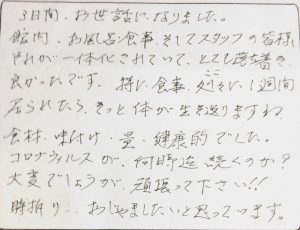 3日間、お世話になりました。
館内、お風呂、食事、そしてスタッフの皆様、
それが一体化されていて、とても落ち着き
良かったです。特に食事、ここに1週間
居られたら、きっと体が生き返りますね。
食材・味付・量・健康的でした。
コロナウィルスが、何時迄続くのか?
大変でしょうが、頑張って下さい!!
時折り、おじゃましたいと思っています。